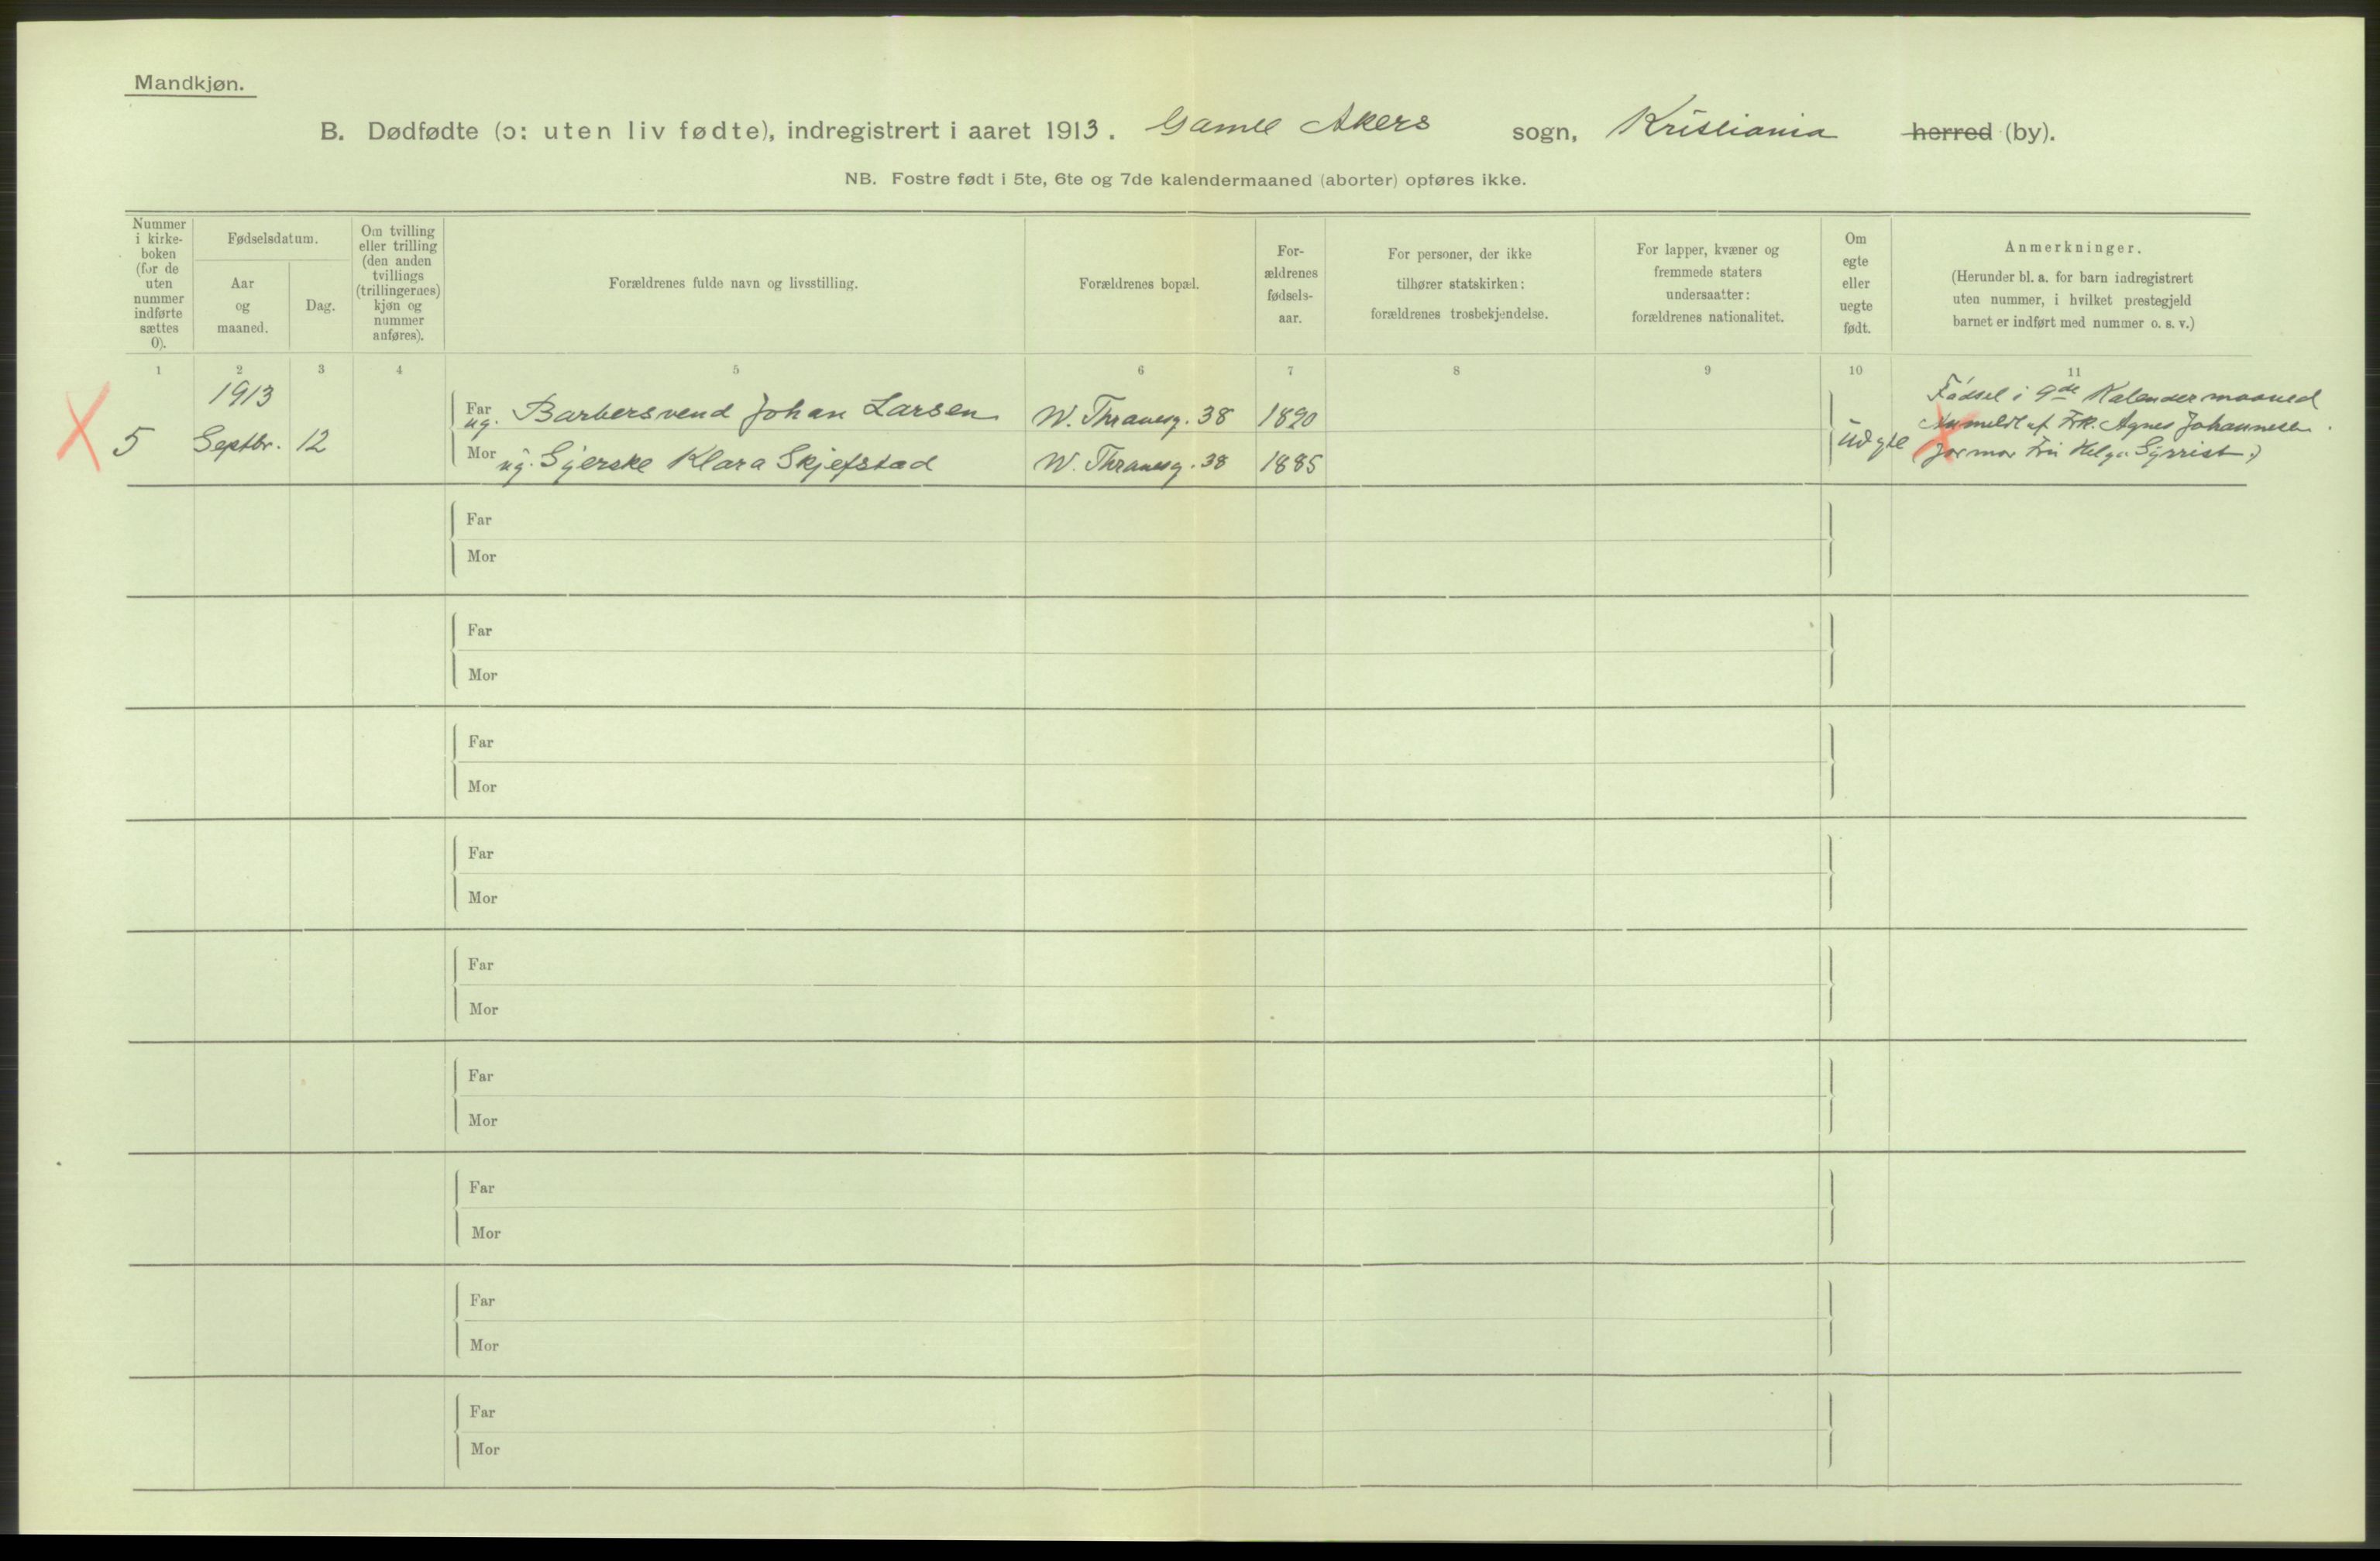 Mandkjøn.
B. Dødfødte (ɔ: uten liv fødte), indregistrert i aaret 1913. Gamle Akers sogn, Kristiania herred (by).
NB. Fostre født i 5te, 6te og 7de kalendermaaned (aborter) opføres ikke.
Nummer
i kirke-
boken
(for de
uten
nummer
indførte
sættes
0).
Fødselsdatum.
Aar
og
maaned.
Dag.
Om tvilling
eller trilling
(den anden
tvillings
(trillingernes)
kjøn og
nummer
anføres).
Forældrenes fulde navn og livsstilling.
Forældrenes bopæl.
For-
ældrenes
fødsels-
aar.
For personer, der ikke
tilhører statskirken:
forældrenes trosbekjendelse.
For lapper, kvæner og
fremmede staters
undersaatter:
forældrenes nationalitet.
Om
egte
eller
uegte
født.
Anmerkninger.
(Herunder bl. a. for barn indregistrert
uten nummer, i hvilket prestegjeld
barnet er indført med nummer o. s. v.)
1 2 3 4 5 6 7 8 9 10 11
1913
5 Septbr. 12
Far ug. Barbersvend Johan Larsen W. Thranesg. 38 1890
Mor ug. Syerske Klara Skjefstad W. Thranesg. 38 1885
Uegte
Fødsel i 9de Kalendermaaned
Anmeldt af Frk. Agnes Johannesen.
(Jormor Fru Helga
Far
Mor
Far
Mor
Far
Mor
Far
Mor
Far
Mor
Far
Mor
Far
Mor
Far
Mor
Far
Mor